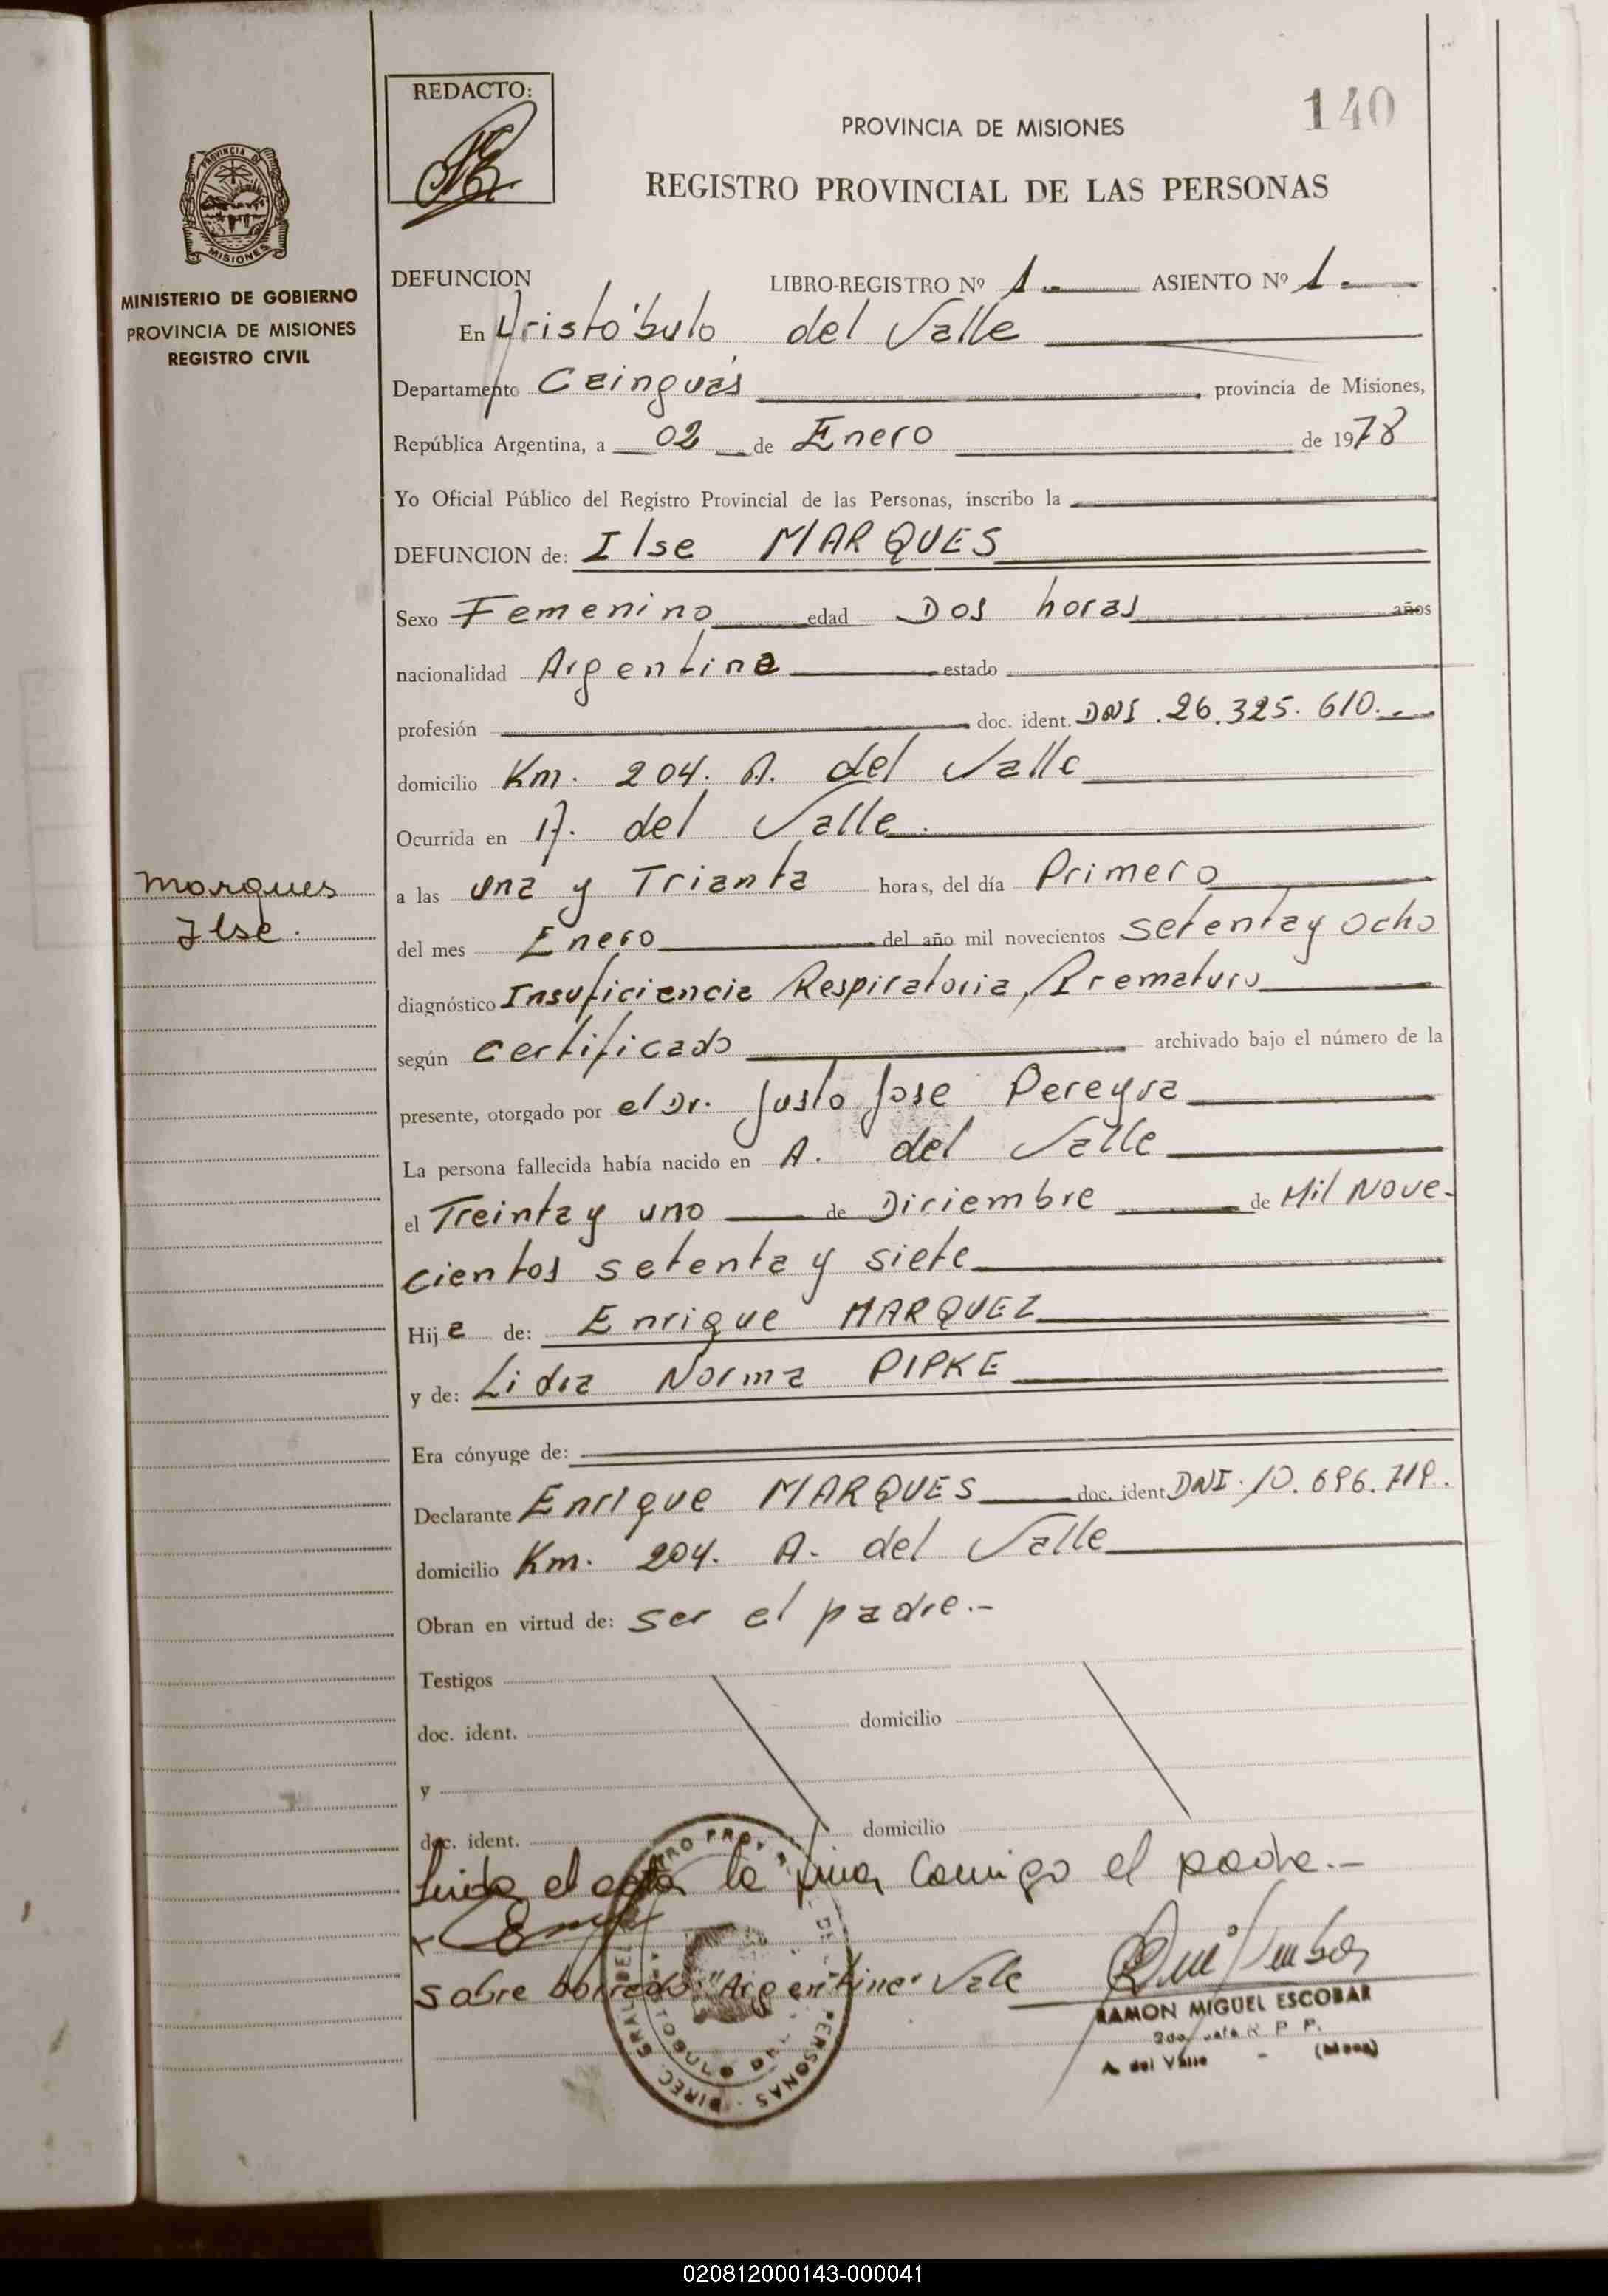 REDACTO:
140
PROVINCIA DE MISIONES
REGISTRO PROVINCIAL DE LAS PERSONAS
PROVINCIA DE
MISIONES
MINISTERIO DE GOBIERNO
PROVINCIA DE MISIONES
REGISTRO CIVIL
Marques
Ilse.
DEFUNCION LIBRO-REGISTRO Nº 1.- ASIENTO Nº 1.-
En Aristóbulo del Valle
Departamento Cainguás, provincia de Misiones,
República Argentina, a 02 de Enero de 1978
Yo Oficial Público del Registro Provincial de las Personas, inscribo la
DEFUNCION de: Ilse MARQUES
Sexo Femenino edad Dos horas años
nacionalidad Argentina estado
profesión doc. ident. DNI. 26.325.610.-
domicilio Km. 204. A. del Valle
Ocurrida en A. del Valle.
a las una y Trianta horas, del día Primero
del mes Enero del año mil novecientos setenta y ocho
diagnóstico Insuficiencia Respiratoria, Prematuro
según certificado archivado bajo el número de la
presente, otorgado por el Dr. Justo Jose Pereyra
La persona fallecida había nacido en A. del Valle
el Treinta y uno de Diciembre de Mil Nove-
cientos setenta y siete
Hija de: Enrique MARQUEZ
y de: Lidia Norma PIPKE
Era cónyuge de:
Declarante Enrique MARQUES doc. ident. DNI. 10.696.719.
domicilio Km. 204. A. del Valle
Obran en virtud de: ser el padre.-
Testigos
doc. ident. domicilio
y
doc. ident. domicilio
Leida el acta la firma Conmigo el padre.-
sobre borrado: "Argentina" Vale
RAMON MIGUEL ESCOBAR
2do. Jefe R. P. P.
A. del Valle - (Mnes)
020812000143-000041